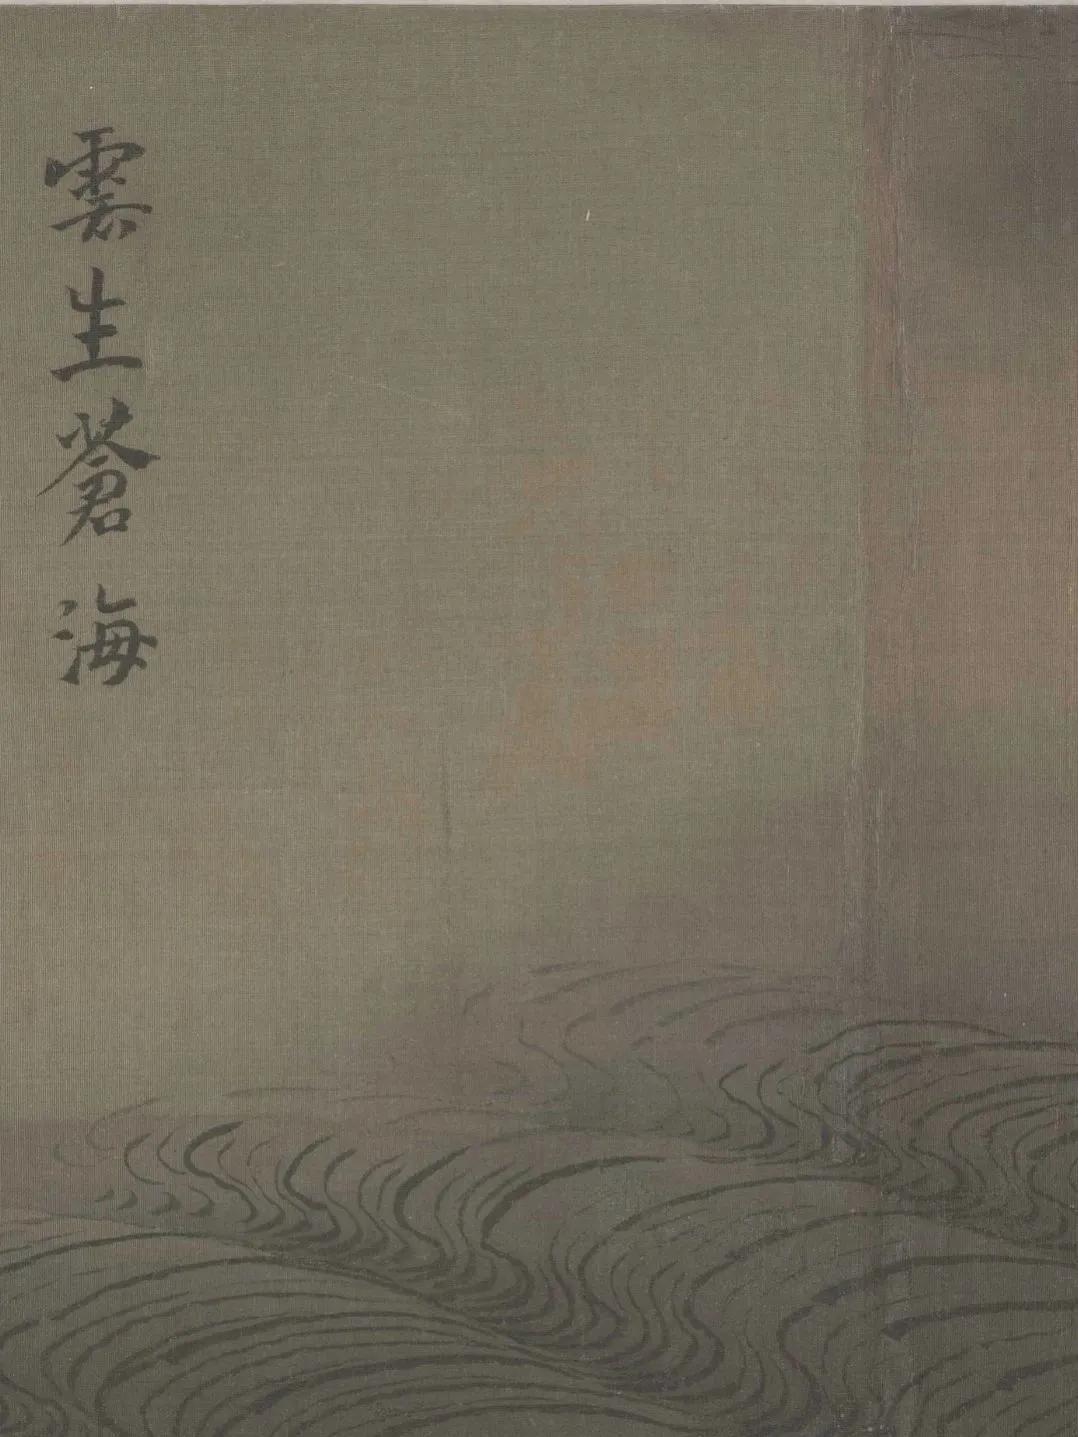 雲生蒼海